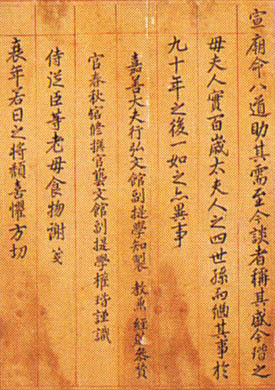 宣廟命八道助其需至今談者稱其盛今瑎之
母夫人實百歲太夫人之四世孫而繼其事於
九十年之後一如之亦異事
嘉善大夫行弘文館副提學知製 教兼 經筵參贊
官春秋館修撰官藝文館副提學權瑎謹識
侍從臣等老母食物謝箋
衰年若日之將頹喜懼方切